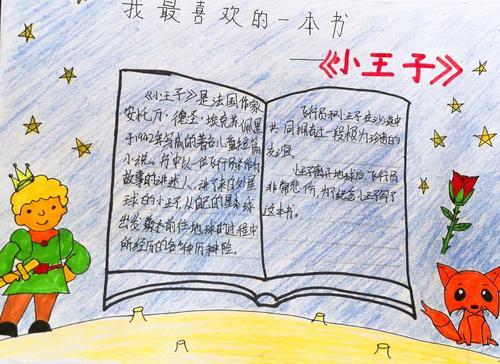 我最喜欢的一本书
——《小王子》
《小王子》是法国作家
安托万·德·圣·埃克苏佩里
于1942年写成的著名儿童短篇
小说。书中以一位飞行员作为
故事的讲述人，讲了来自外星
球的小王子，从自己的星球
出发前往地球的过程中
所经历的各种历险。
飞行员和小王子在沙漠中
共同拥有过一段极为珍贵的
友谊。
小王子离开地球后，飞行员
非常悲伤，为了纪念小王子写了
这本书。